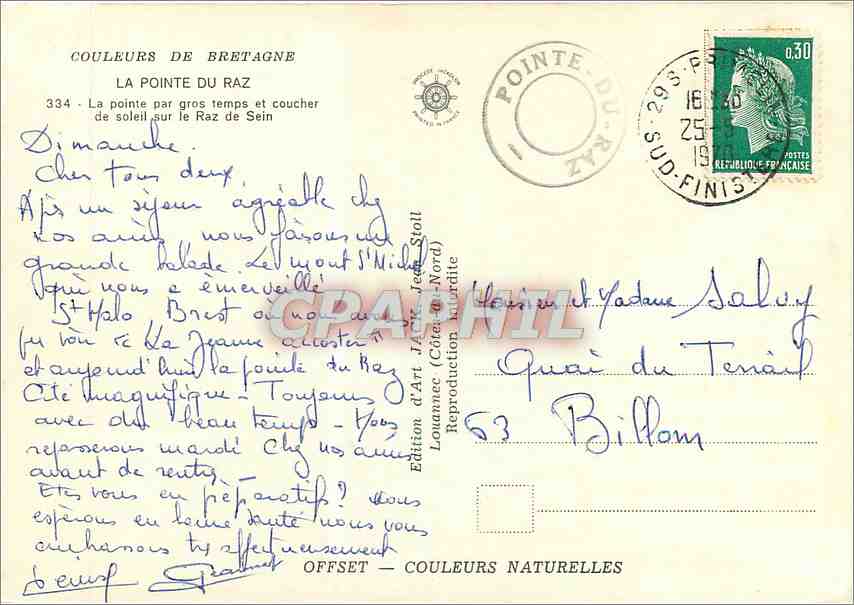 COULEURS DE BRETAGNE
LA POINTE DU RAZ
334 - La pointe par gros temps et coucher
de soleil sur le Raz de Sein
PRINTED IN FRANCE
POINTE-DU-RAZ
29S-
16H30
25-
1970
SUD-FINISTERE
0,30
POSTES
REPUBLIQUE FRANÇAISE
Dimanche.
Cher tous deux
Après un séjour agréable chez
nos amis nous faisons une
grande balade Le mont St Michel
qui nous a émerveillé
St Malo Brest où nous avons
pu voir "La Jeanne accoster"
et aujourd'hui la pointe du Raz
Cité magnifique - Toujours
avec du beau temps - Nous
repasserons mardi chez nos amis
avant de rentrer
Etes vous en préparatifs? Nous
espérons en bonne santé nous vous
embrassons très affectueusement
Jeannot
Edition d'Art JACK Jean Stoll
Louannec (Côtes-du-Nord)
Reproduction interdite
CPAPHIL
Monsieur et Madame Salvy
Quai du Terrail
63 Billom
OFFSET — COULEURS NATURELLES